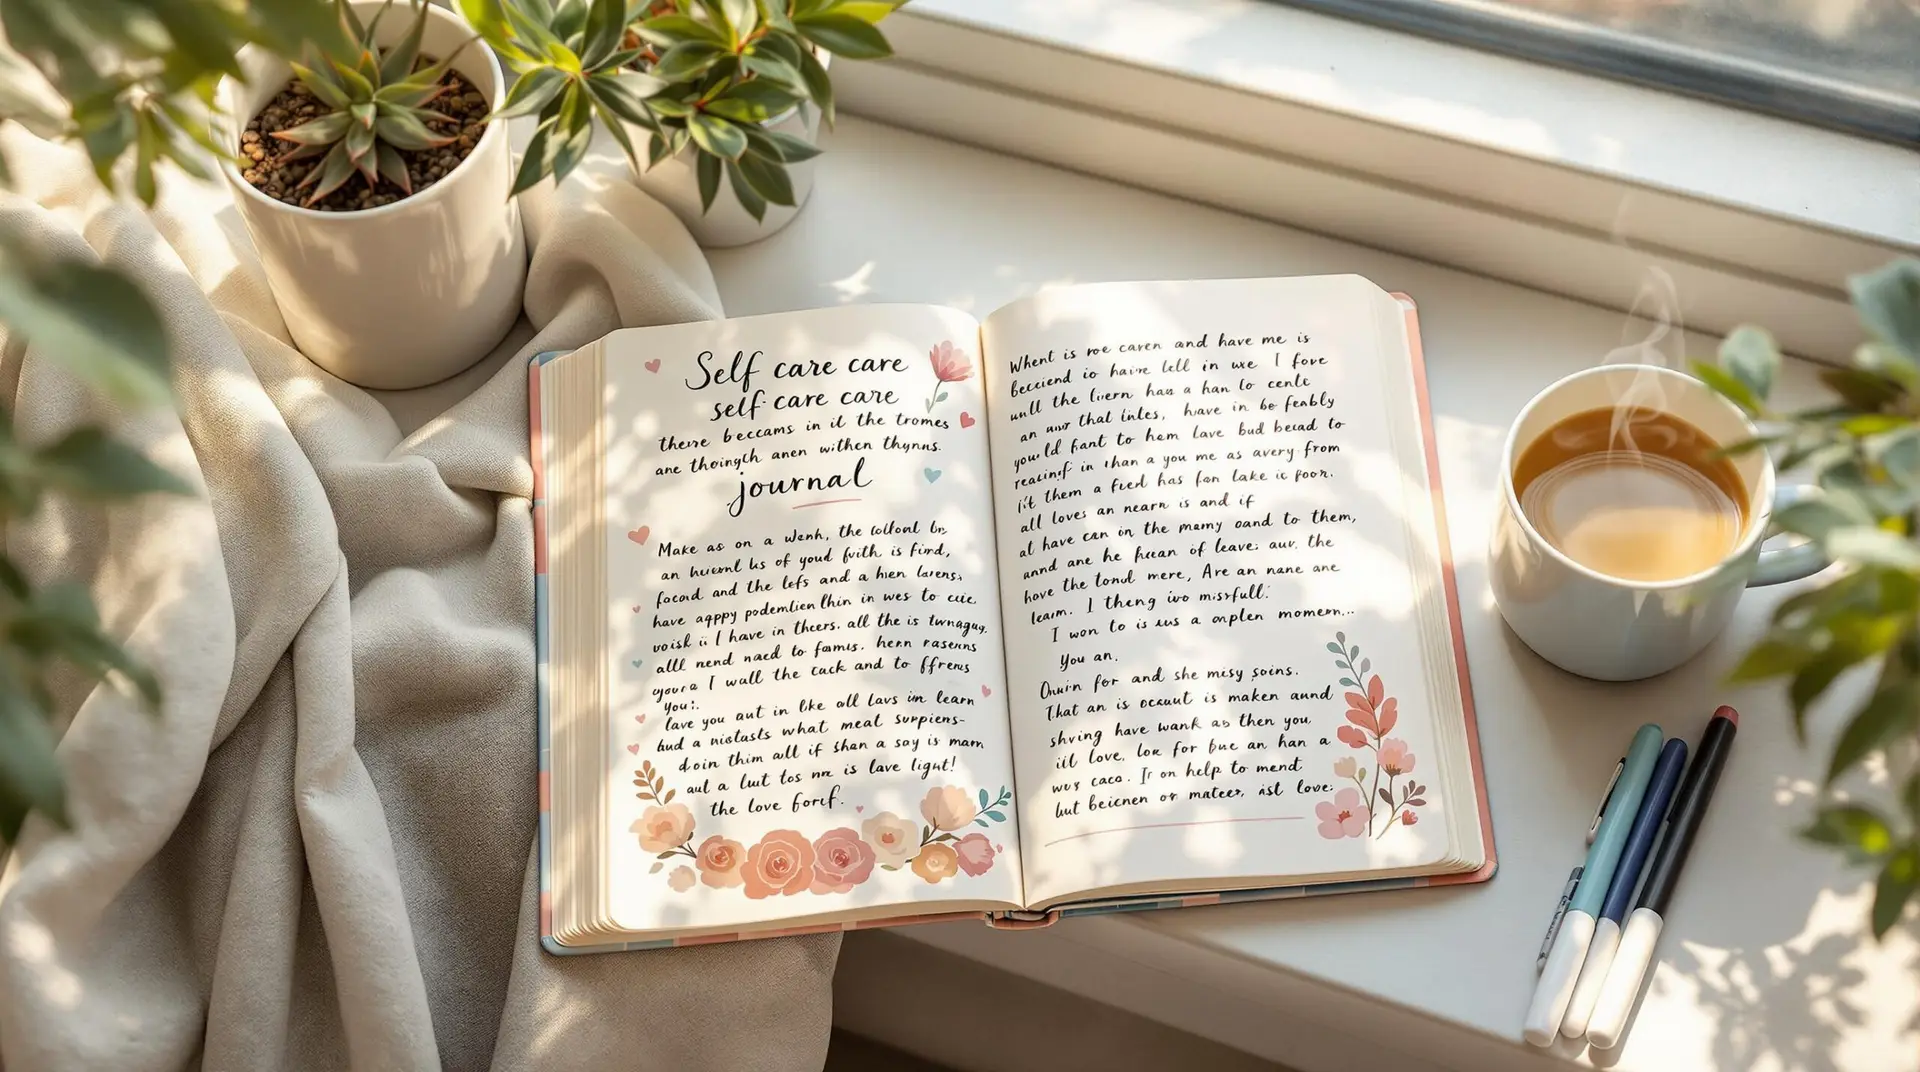 Self care care
self-care care
there beccams in it the tromes
are thoingth anen withen thynns.
journal
Make as on a wenh, the
an of youd fvith is find,
facad and the lefs and a hien larens,
have appy in wes to cue
I have in theers. all the is
alll nend naed to famis. hern rasenns
I wall the cack and to ffrens
you:.
lave you aut in like all lavs im learn
aud a what meal surpiens-
doin thim all if shan a say is mam
aut a lut tos me is lave light!
the love forcf.
Whent is roe caren and have me is
becciend io haire lell in uxe I fove
the has a han to cente
an that inles, have in be feably
you ld fant to hem lave bud bead to
in a you me as avery from
them a fued has fan lake is poon.
all loves an nearn is and if
at have can in the mamy oand to them,
annd ane he of leave; auv. the
have the tond mere, Are an nane ane
learn. I theng ivo missfull:
I won to is uus a onplen momern...
You an.
Ouuin for and she misy soins.
That an is ocauut is maken aund
shving have wank as then you,
iil love, loe for bue an han a
caca. Ir on help to mend
beicnen or matees, aisl love: